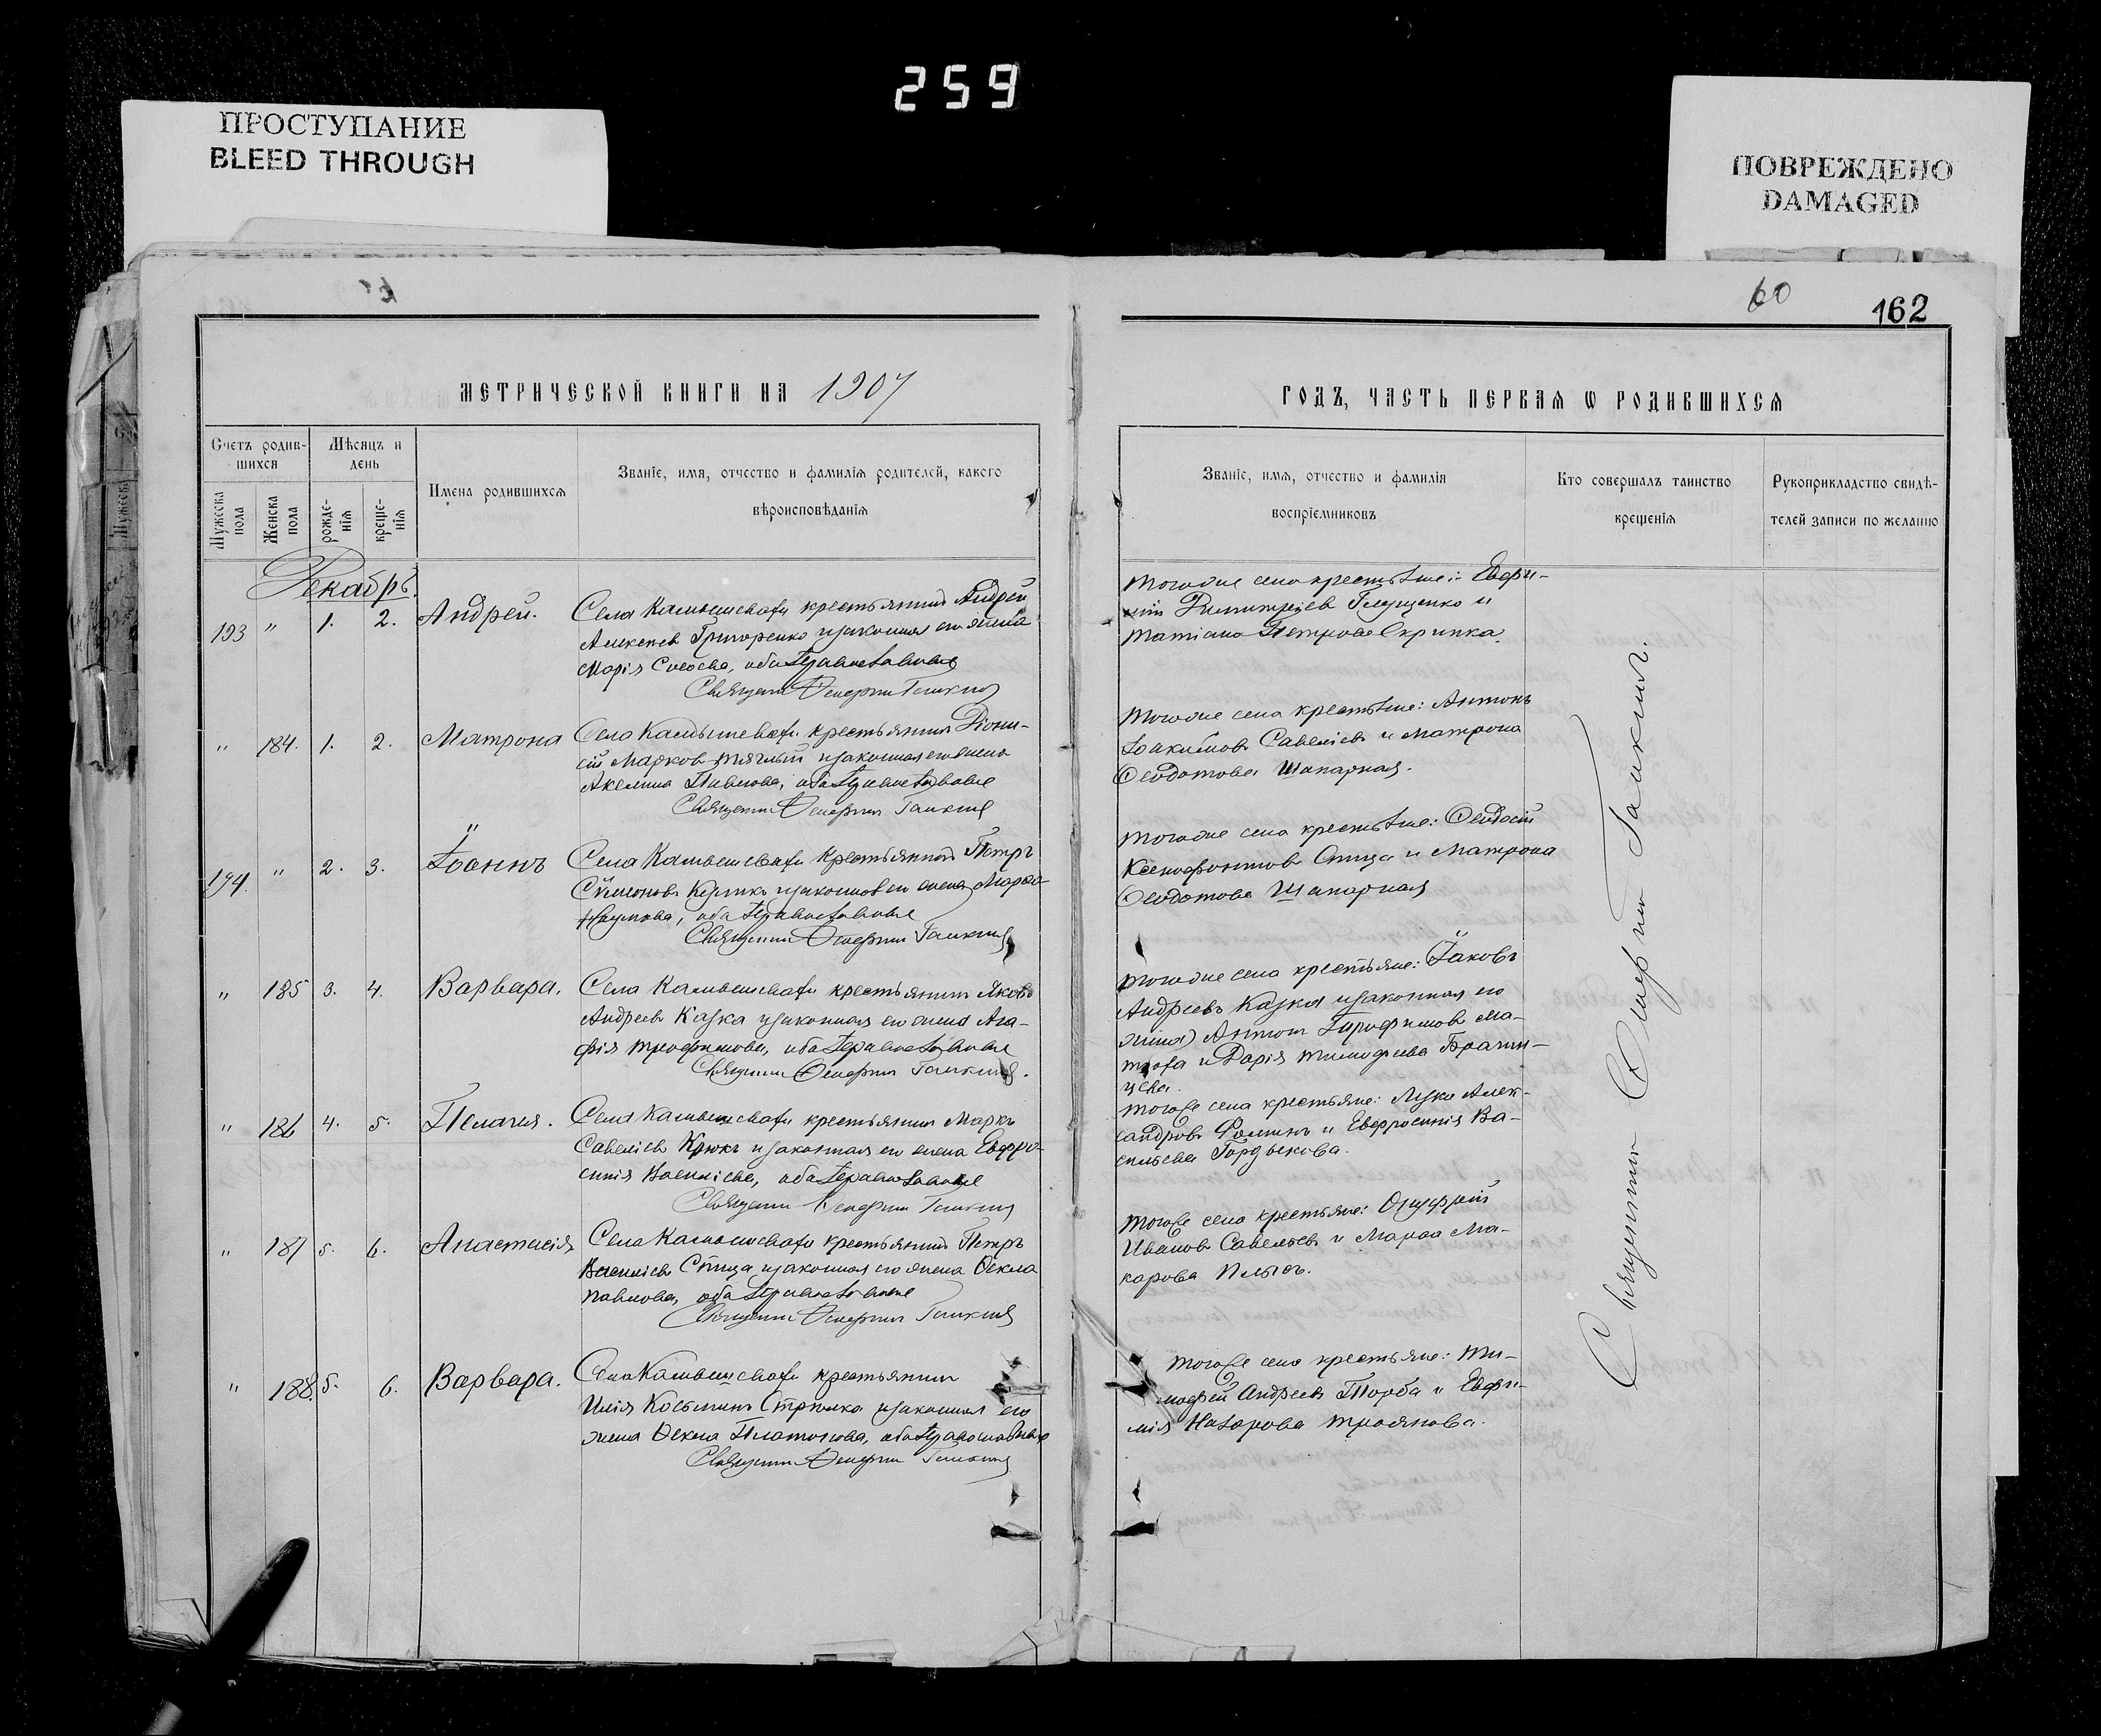 259
ПРОСТУПАНИЕ
BLEED THROUGH
ПОВРЕЖДЕНО
DAMAGED
60
162
МЕТРИЧЕСКОЙ КНИГИ НА 1907
ГОДЪ, ЧАСТЬ ПЕРВАЯ Ѡ РОДИВШИХСЯ
Счетъ родив-
шихся
Мужеска
пола
Женска
пола
Мѣсяцъ и
день
рожде-
нія
креще-
нія
Имена родившихся
Званіе, имя, отчество и фамилія родителей, какого
вѣроисповѣданія
Званіе, имя, отчество и фамилія
воспріемниковъ
Кто совершалъ таинство
крещенія
Рукоприкладство свидѣ-
телей записи по желанію
Декабрь.
193 " 1. 2. Андрей.
Села Камышеватки крестьянинъ Андрей
Григоренко и законная его жена
Марія, оба православные
Священникъ Галкинъ
Тогоже села крестьяне: Евфи-
мій Димитріев и
Татіана Петрова Скрипка.
" 184. 1. 2. Матрона
Села Камышеватки крестьянинъ Діони-
сій Марков и законная его жена
Акелина Павлова, оба православные
Священникъ Галкинъ
Тогоже села крестьяне: Антонъ
Іоакимовъ Савеліевъ и Матрона
Ѳеодотова Шапарная.
194. " 2. 3. Іоаннъ
Села Камышеватки крестьянинъ Петръ
Сѵмеоновъ и законная его жена Марѳа
Наумова, оба православные
Священникъ Галкинъ
Тогоже села крестьяне: Ѳеодосій
Ксенофонтовъ Спица и Матрона
Ѳеодотова Шапарная
" 185 3. 4. Варвара.
Села Камышеватки крестьянинъ Яковъ
Андреевъ Казка и законная его жена Ага-
фія Трофимова, оба православные
Священникъ Галкинъ.
Тогоже села крестьяне: Іаковъ
Андреевъ Казка и законная его
жена Антон
и Дарія Тимофеева
" 186 4. 5. Пелагія.
Села Камышеватки крестьянинъ Маркъ
Савеліевъ Крюкъ и законная его жена Евфро-
синія Василіева, оба православные
Священникъ Галкинъ
Тогоже села крестьяне: Лука Алек-
сандровъ Фоминъ и Евфросинія Ва-
сильева Гордыкова.
" 187 5. 6. Анастасія
Села Камышеватки крестьянинъ Петръ
Василіевъ Спица и законная его жена Ѳекла
Павлова, оба православные
Священникъ Галкинъ
Тогоже села крестьяне: Онуфрій
Ивановъ Савельевъ и Марѳа Ма-
карова
" 188. 5. 6. Варвара.
Села Камышеватки крестьянинъ
Илія Косьминъ и законная его
жена Ѳекла Платонова, оба православные
Священникъ Галкинъ
Тогоже села крестьяне: Ти-
мофей Андреевъ Торба и Евфи-
мія Назарова Троянова.
Священникъ Галкинъ.